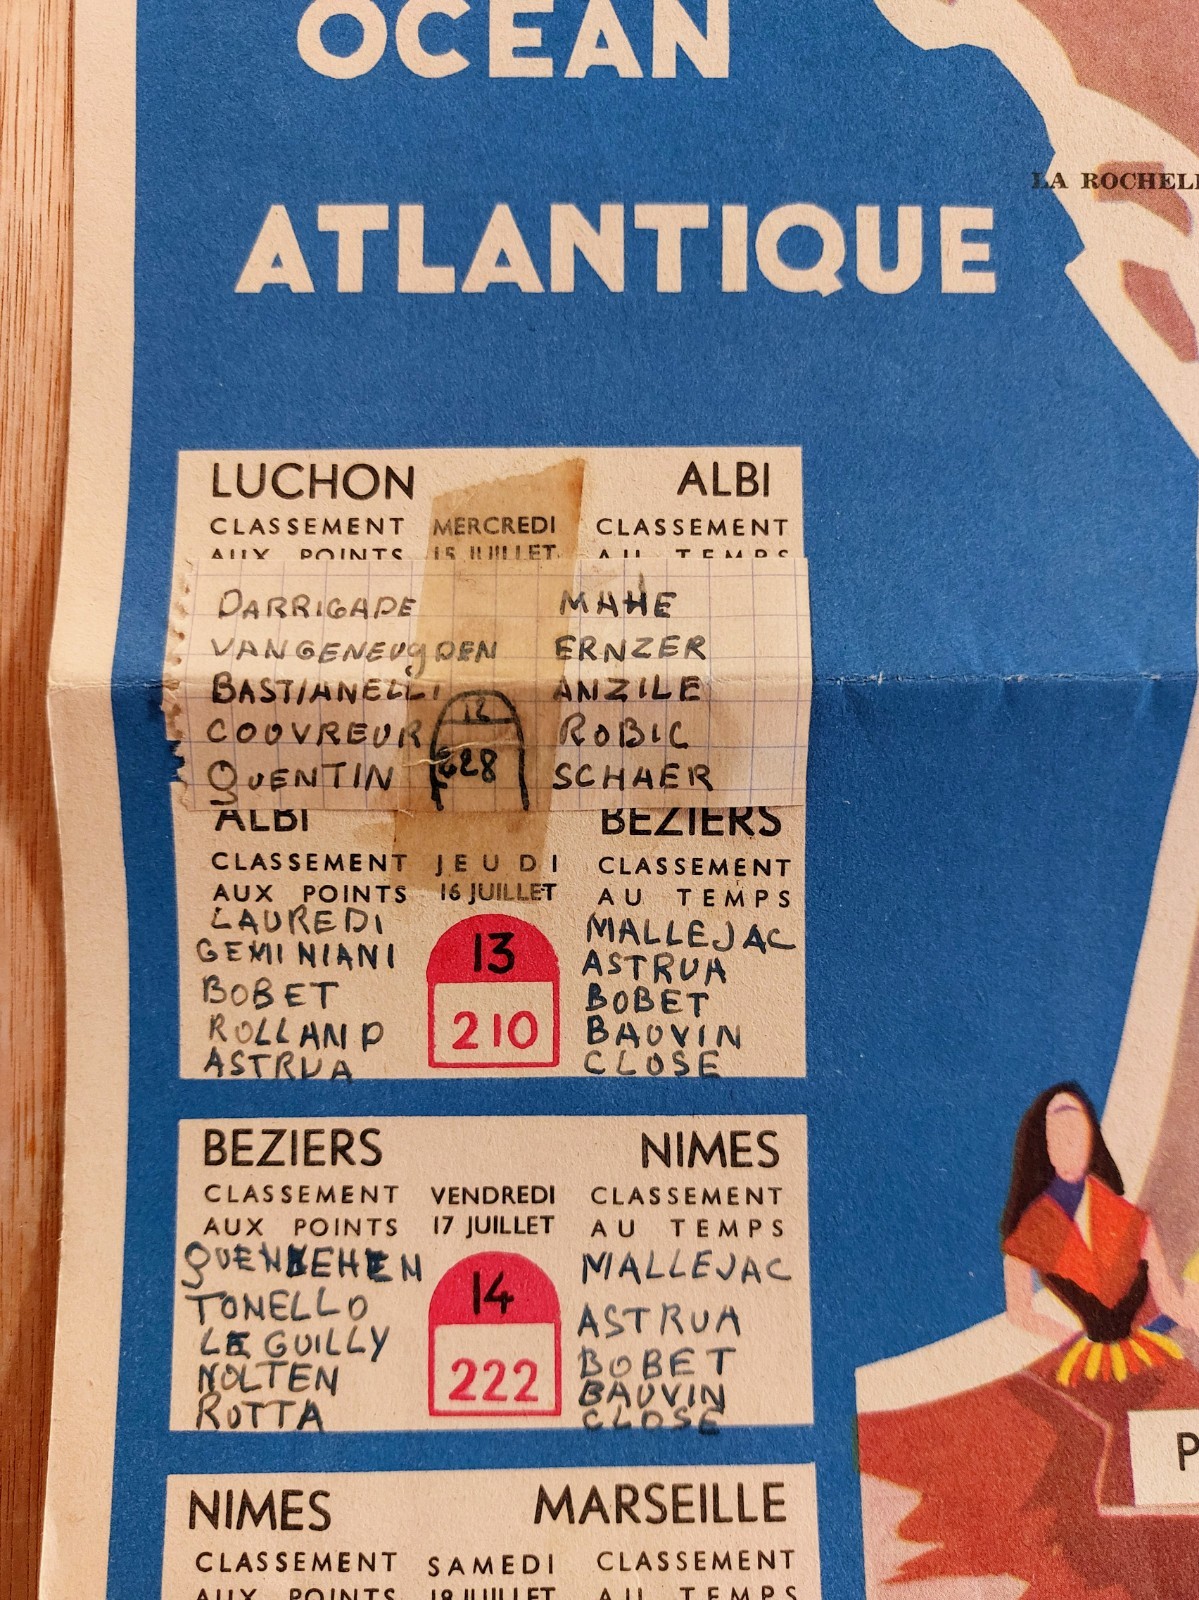 OCEAN
ATLANTIQUE
LA ROCHELL
LUCHON ALBI
CLASSEMENT MERCREDI CLASSEMENT
AUX POINTS 15 JUILLET AU TEMPS
DARRIGADE MAHE
VANGENEUGDEN ERNZER
BASTIANELLI ANZILE
12
COUVREUR ROBIC
QUENTIN 228 SCHAER
ALBI BEZIERS
CLASSEMENT JEUDI CLASSEMENT
AUX POINTS 16 JUILLET AU TEMPS
LAUREDI MALLEJAC
GEMINIANI 13 ASTRUA
BOBET BOBET
ROLLAND 210 BAUVIN
ASTRUA CLOSE
BEZIERS NIMES
CLASSEMENT VENDREDI CLASSEMENT
AUX POINTS 17 JUILLET AU TEMPS
QUENKEHEN MALLEJAC
TONELLO 14 ASTRUA
LE GUILLY BOBET
NOLTEN 222 BAUVIN
ROTTA CLOSE
P
NIMES MARSEILLE
CLASSEMENT SAMEDI CLASSEMENT
AUX POINTS 18 JUILLET AU TEMPS